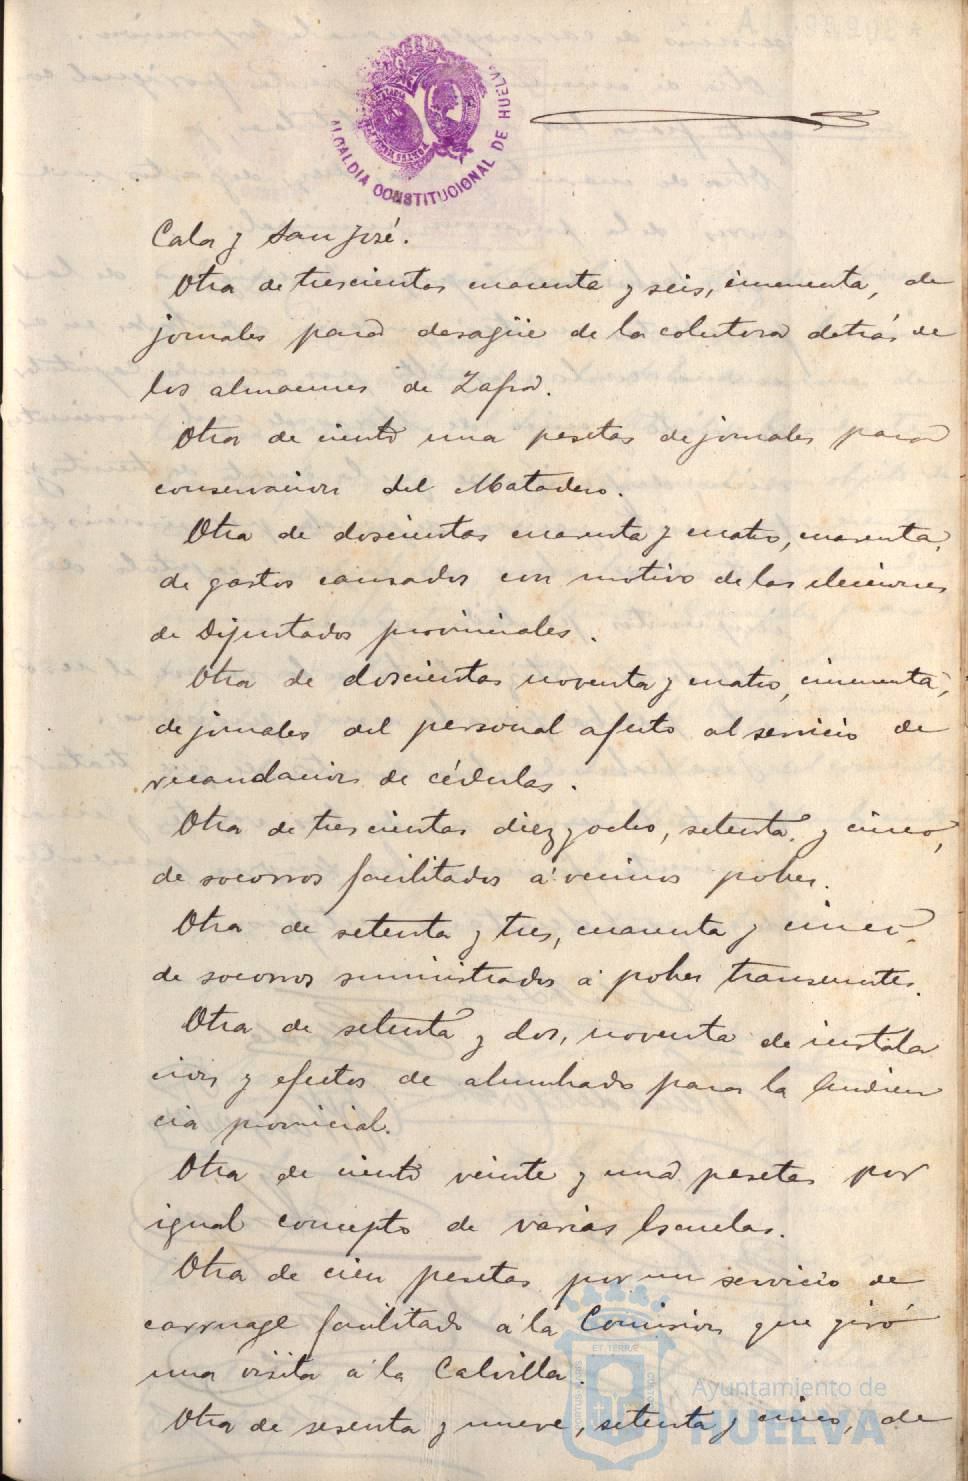 ALCALDIA CONSTITUCIONAL DE HUELVA
Cala y San José.
Otra de trescientas cuarenta y seis, cincuenta, de
jornales para desagüe de la colectora detrás de
los almacenes de Zafra.
Otra de ciento una pesetas de jornales para
conservacion del Matadero.
Otra de doscientas cuarenta y cuatro, cuarenta,
de gastos causados con motivo de las elecciones
de Diputados provinciales.
Otra de doscientas noventa y cuatro, cincuenta,
de jornales del personal afecto al servicio de
recaudacion de cédulas.
Otra de trescientas diez y ocho, setenta y cinco,
de socorros facilitados á vecinos pobres.
Otra de setenta y tres, cuarenta y cinco
de socorros suministrados á pobres transeuntes.
Otra de setenta y dos, noventa de instala
cion y efectos de alumbrado para la Audien
cia provincial.
Otra de ciento veinte y una pesetas por
igual concepto de varias Escuelas.
Otra de cien pesetas por un servicio de
carruage facilitado á la Comision que giró
una visita á la Calvilla.
Otra de sesenta y nueve, setenta y cinco, de
Ayuntamiento de
HUELVA